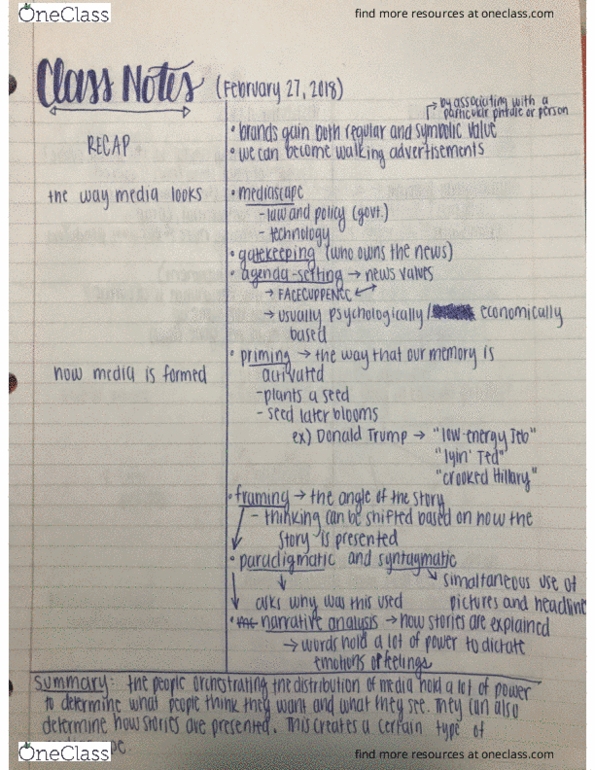 OneClass
find more resources at oneclass.com
Class Notes (February 27, 2018)
by associating with a
particular phrase or person
RECAP
• brands gain both regular and symbolic value
• we can become walking advertisements
the way media looks
• mediascape
- law and policy (govt.)
- technology
• gatekeeping (who owns the news)
• agenda-setting → news values
→ FACECUPPENCC
→ usually psychologically / economically
based
how media is formed
• priming → the way that our memory is
activated
- plants a seed
- seed later blooms
ex) Donald Trump → "low-energy Jeb"
"lyin' Ted"
"crooked Hillary"
• framing → the angle of the story
- thinking can be shifted based on how the
story is presented
• paradigmatic and syntagmatic
simaltaneous use of
pictures and headline
asks why was this used
• narrative analysis → how stories are explained
→ words hold a lot of power to dictate
emotions or feelings
summary: the people orchestrating the distribution of media hold a lot of power
to determine what people think they want and what they see. They can also
determine how stories are presented. This creates a certain type of
OneClass
find more resources at oneclass.com